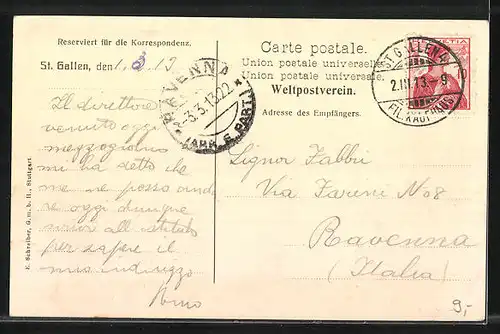 Reserviert für die Korrespondenz.
St. Gallen, den 1. 3. 13
Carte postale.
Union postale universelle.
Union postale universale.
Weltpostverein.
Adresse des Empfängers.
HELVETIA
ST. GALLEN
2.III.13.-9
FIL. KAUFHAUS
RAVENNA
-3.3.13.22
(ARR. E PART.)
Il direttore
venuto oggi
mezzogiorno
mi ha detto che
me ne posso anda
re oggi dunque
all istituto
per sapere il
mio indirizzo
Signor Fabbri
Via No 8
Ravenna
(Italia)
E. Schreiber, G.m.b.H., Stuttgart.
9,-